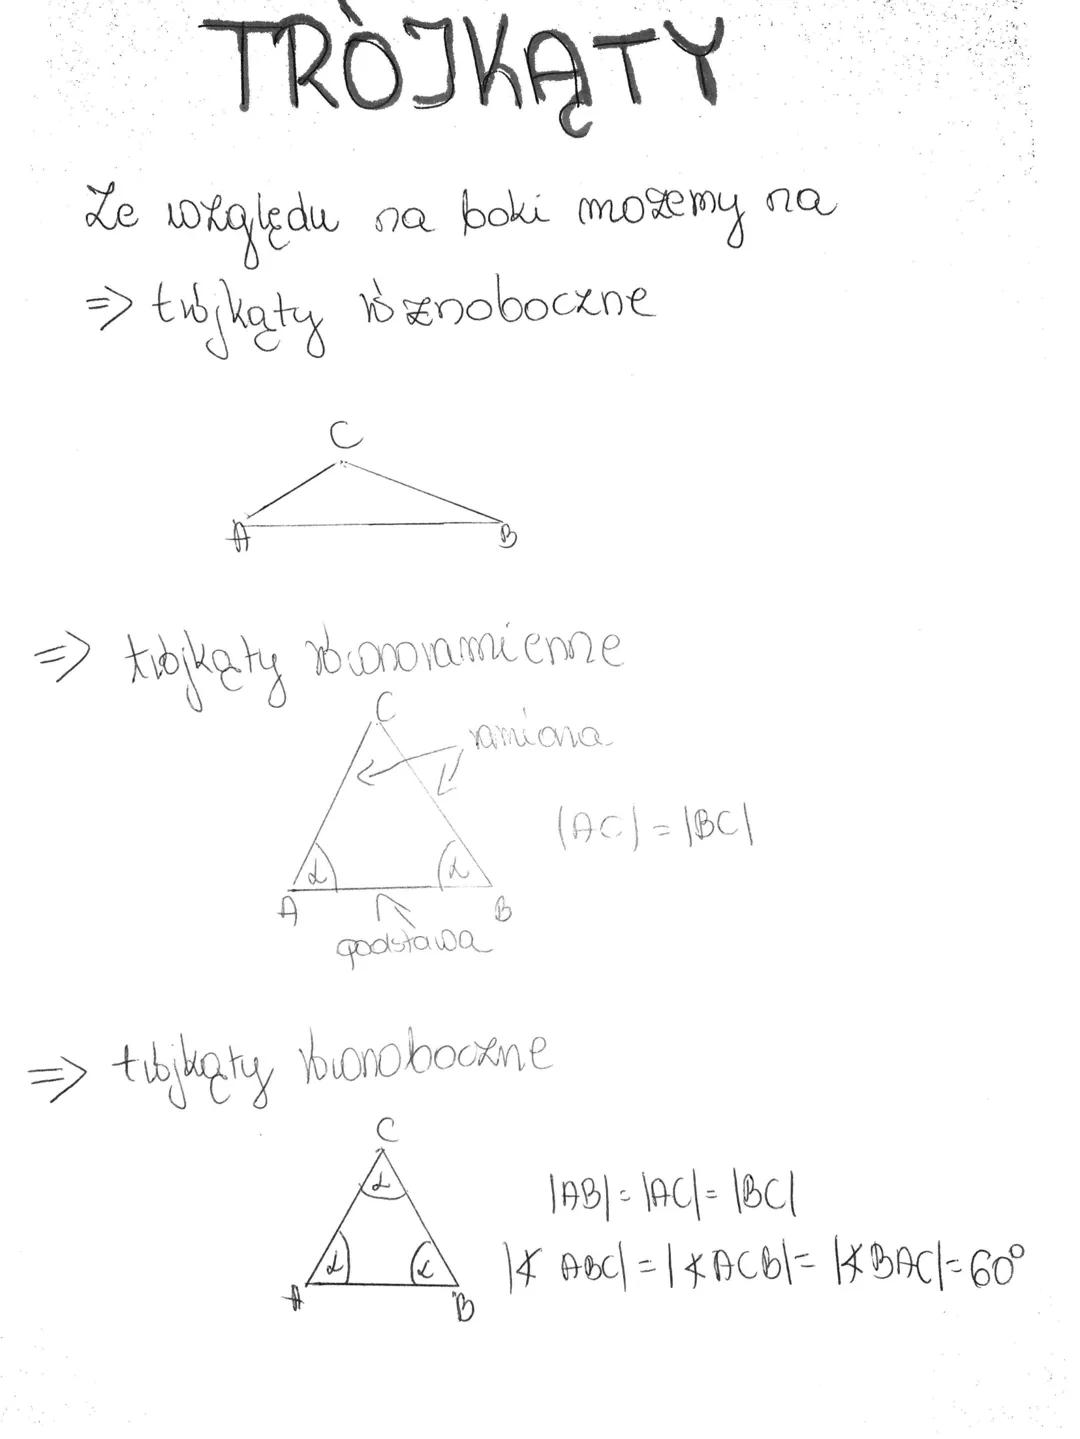 TRÓJKĄTY
Ze względu na boki możemy na
=> trójkąty różnoboczne
C
A
B
=> trójkąty równoramienne
C
ramiona
|AC| = |BC|
α α
A B
podstawa
=> trójkąty równoboczne
C
α
|AB| = |AC| = |BC|
α α
|∢ ABC| = |∢ACB| = |∢BAC| = 60°
A B